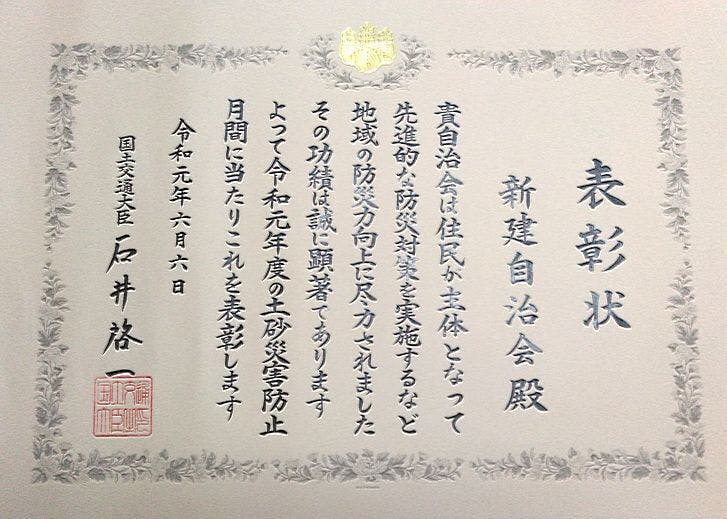 表彰状
新建自治会殿
貴自治会は住民が主体となって
先進的な防災対策を実施するなど
地域の防災力向上に尽力されました
その功績は誠に顕著であります
よって令和元年度の土砂災害防止
月間に当たりこれを表彰します
令和元年六月六日
国土交通大臣 石井啓一